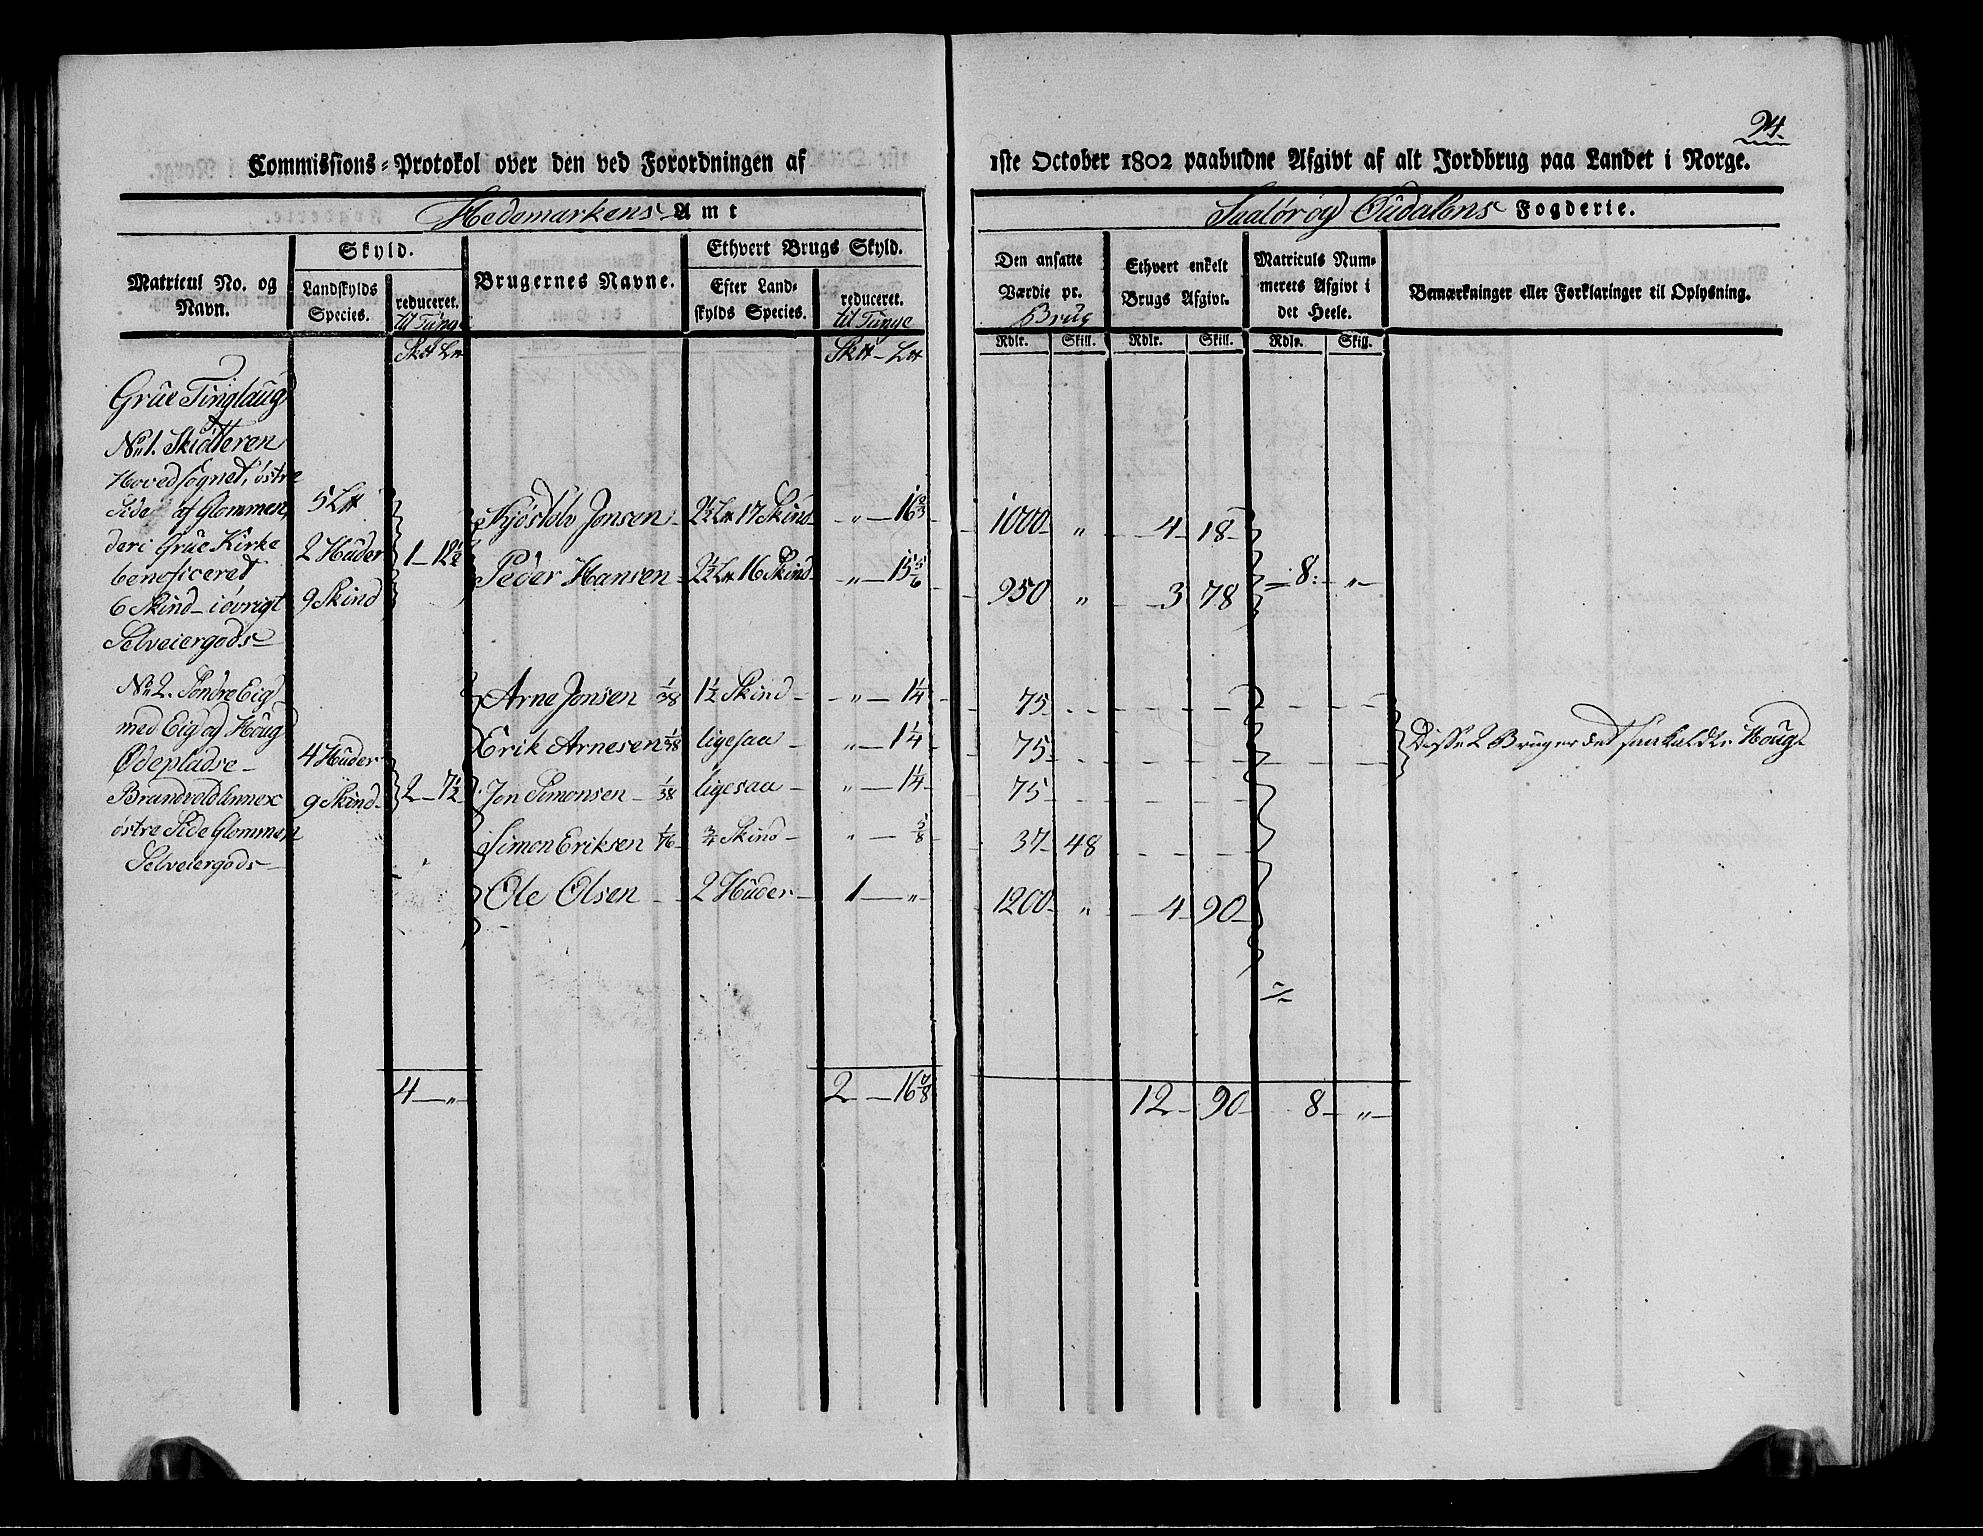 24.
Commissions-Protokol over den ved Forordningen af 1ste October 1802 paabudne Afgivt af alt Jordbrug paa Landet i Norge.
Hedemarkens Amt
Soelør og Oudalens Fogderie.
Matricul No. og Navn.
Skyld.
Landskylds Species.
reduceret. til Tunge
Brugernes Navne.
Ethvert Brugs Skyld.
Efter Landskylds Species.
reduceret. til Tunge
Den ansatte Værdie pr. Brug
Ethvert enkelt Brugs Afgivt.
Matriculs Nummerets Afgivt i det Heele.
Bemærkninger eller Forklaringer til Oplysning.
Rdlr. Skill. Rdlr. Skill. Rdlr. Skill.
Grue Tinglaug
No 1. Skiötteren
Hovedsognet, östre
Side af Glommen,
deri Grue Kirke
beneficeret
6 Skind - i övrigt
Selveiergods
5 L℔
2 Huder
9 Skind
1 - 12½
Kjöstolv Jonsen - 2½ L℔ 17 Skind - „ - 16⅔ - 1000 - „ - 4 - 18 -
Peder Hansen - 2½ L℔ 16 Skind - „ - 15⅚ - 950 „ - 3 78
8 - „ -
No 2. Söndre Eig
med Eig og Houg
Ødepladse -
Brandvold Annex
östre Side Glommen
Selveiergods -
4 Huder
9 Skind
2 - 7½
Arne Jonsen 1/38 1½ Skind - „ - 1¼ 75
Erik Arnesen 1/38 ligesaa - „ - 1¼ 75
Disse 2 Bruger det saakaldte Houg
Jon Simonsen - 1/38 ligesaa - „ - 1¼ 75
Simon Eriksen 1/76 - ¾ Skind - „ - ⅝ 37 - 48
Ole Olsen - 2 Huder - 1 - „ - 1200 - „ - 4 - 90
4 - „ - 2 - 16⅞ 12 - 90 8 - „ -